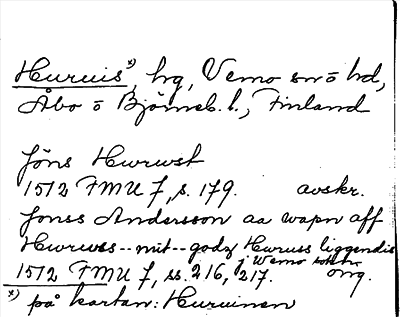 Huruis*), hg, Vemo sn o hd,
Åbo o Björneb. l., Finland
Jöns Hwrwst
1512 FMU 7, s. 179. avskr.
Jonss Andersson aa wapn aff
Hwrwss -- mit -- godz Hwruss liggendis
j Wemo sokn
1512 FMU 7, ss. 216, 217. orig.
*) på kartan: Huruinen